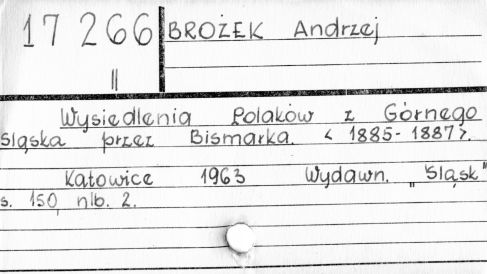 17 266
II
BROŻEK Andrzej
Wysiedlenia Polaków z Górnego
Śląska przez Bismarka. < 1885-1887>.
Katowice 1963 Wydawn. "Śląsk"
s. 150, nlb. 2.